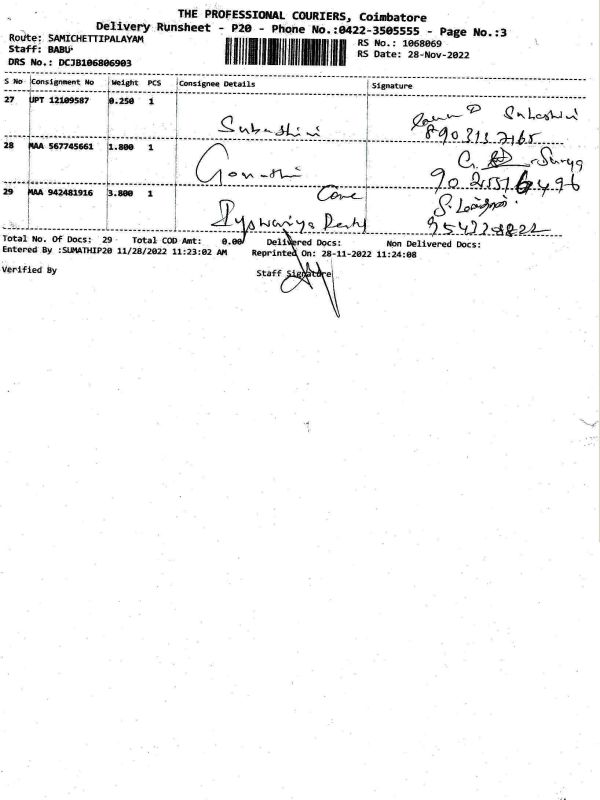 THE PROFESSIONAL COURIERS, Coimbatore
Delivery Runsheet - P20 - Phone No.:0422-3505555 - Page No.:3
Route: SAMICHETTIPALAYAM
RS No.: 1068069
Staff: BABU
RS Date: 28-Nov-2022
DRS No.: DCJB106806903
S No Consignment No Weight PCS Consignee Details Signature
27 UPT 12109587 0.250 1
Subashini
28 MAA 567745661 1.800 1
Gomathi
29 MAA 942481916 3.800 1
Total No. Of Docs: 29 Total COD Amt: 0.00 Delivered Docs: Non Delivered Docs:
Entered By :SUMATHIP20 11/28/2022 11:23:02 AM Reprinted On: 28-11-2022 11:24:08
Verified By Staff Signature